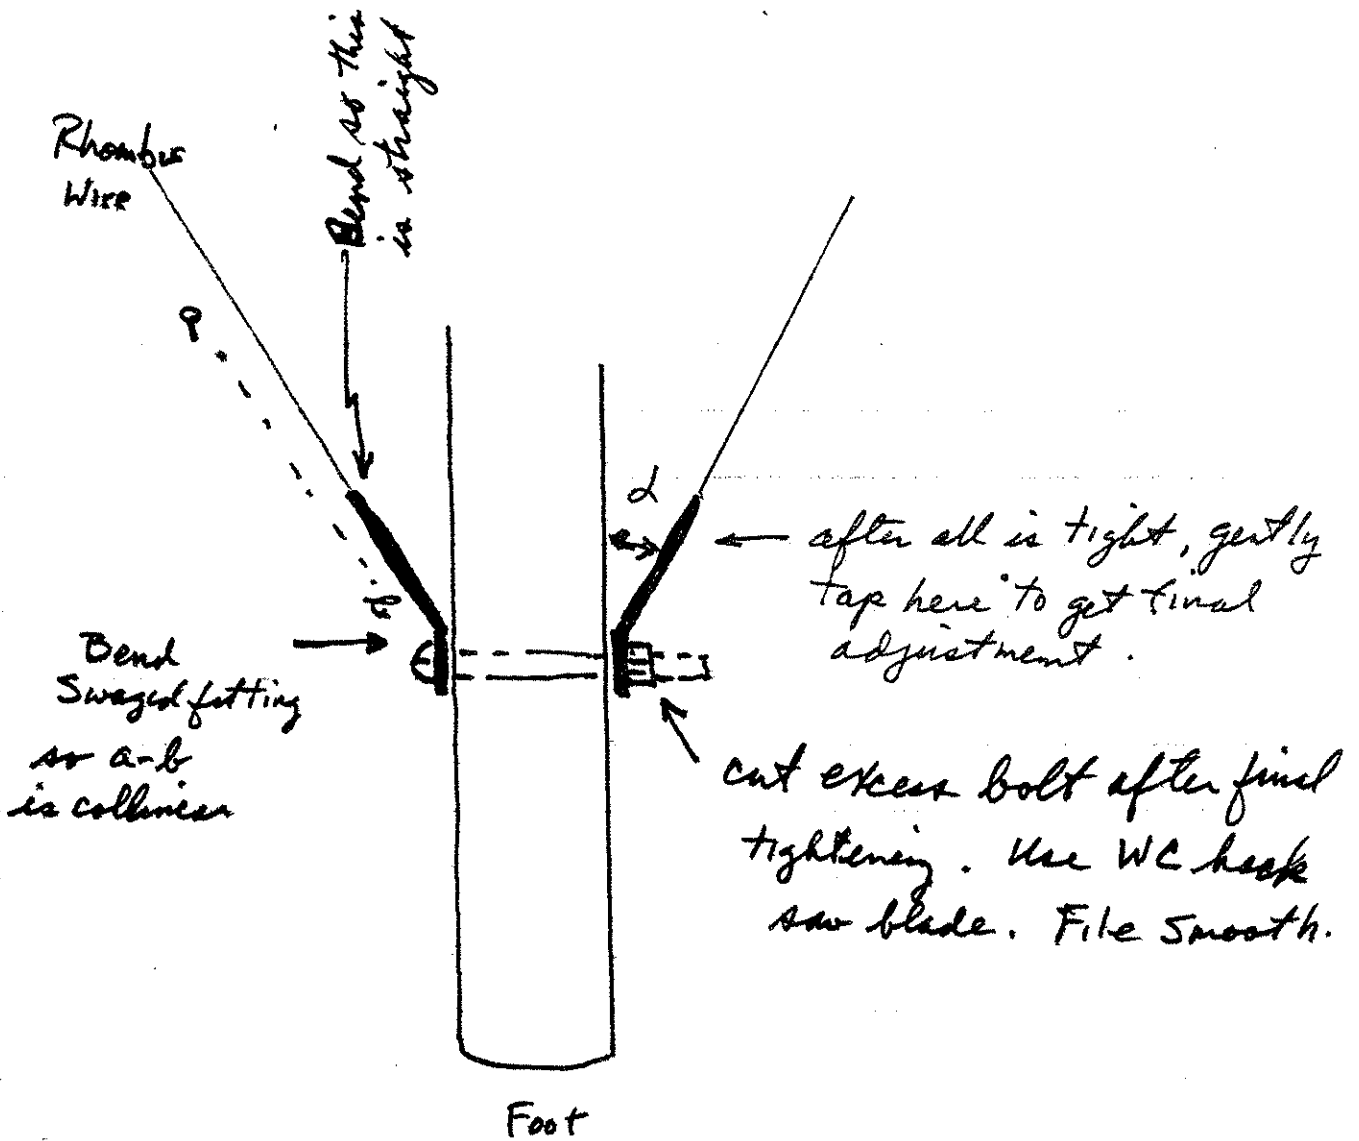 Bend so this
is straight
Rhombus
Wire
a
d
after all is tight, gently
tap here to get final
adjustment.
b
Bend
Swaged fitting
so a-b
is collinear
cut excess bolt after final
tightening. Use WC hack
saw blade. File smooth.
Foot